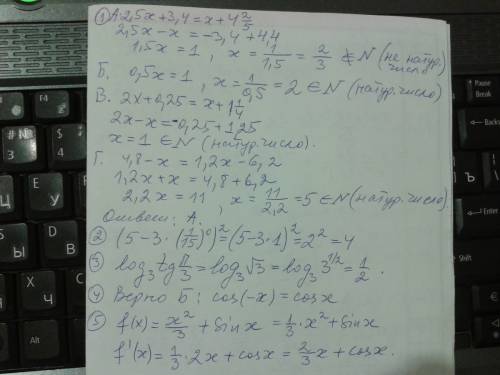 ① А. 2,5x+3,4=x+4 2/5
2,5x-x=-3,4+4,4
1,5x=1 , x=1/1,5=2/3 ∉N (не натур. число)
Б. 0,5x=1 , x=1/0,5=2∈N (натур. число)
В. 2x+0,25=x+1 1/4
2x-x=-0,25+1,25
x=1∈N (натур. число).
Г. 4,8-x=1,2x-6,2
1,2x+x=4,8+6,2
2,2x=11 , x=11/2,2=5∈N (натур. число)
Ответ: А.
② (5-3·(1/15)⁰)²=(5-3·1)²=2²=4
③ log₃tg π/3=log₃√3=log₃3^1/2=1/2.
④ Верно Б: cos(-x)=cosx
⑤ f(x)=x²/3+sinx=1/3·x²+sinx
f'(x)=1/3·2x+cosx=2/3x+cosx.
Pause
Break
Backspace